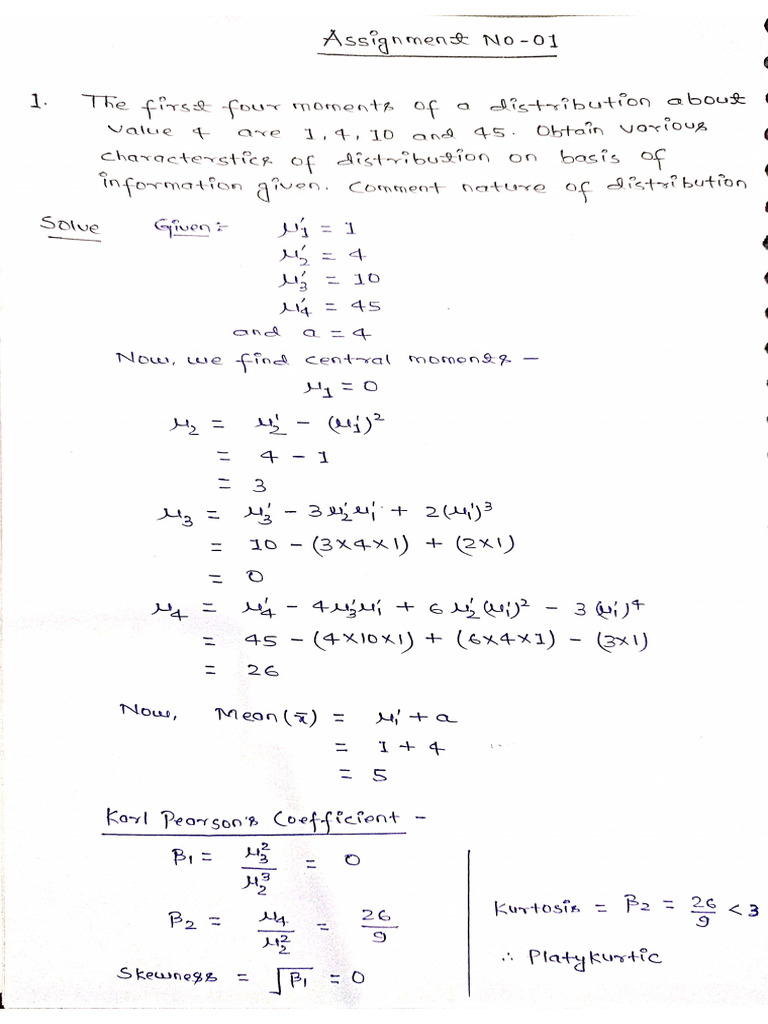 Assignment No-01
1. The first four moments of a distribution about
value 4 are 1, 4, 10 and 45. Obtain various
characterstics of distribution on basis of
information given. Comment nature of distribution
Solve Given:- μ₁′ = 1
μ₂′ = 4
μ₃′ = 10
μ₄′ = 45
and a = 4
Now, we find central moments -
μ₁ = 0
μ₂ = μ₂′ - (μ₁′)²
= 4 - 1
= 3
μ₃ = μ₃′ - 3μ₂′μ₁′ + 2(μ₁′)³
= 10 - (3×4×1) + (2×1)
= 0
μ₄ = μ₄′ - 4μ₃′μ₁′ + 6μ₂′(μ₁′)² - 3(μ₁′)⁴
= 45 - (4×10×1) + (6×4×1) - (3×1)
= 26
Now, Mean(x̄) = μ₁′ + a
= 1 + 4
= 5
Karl Pearson's Coefficient -
β₁ = μ₃²/μ₂³ = 0
β₂ = μ₄/μ₂² = 26/9
Skewness = √β₁ = 0
Kurtosis = β₂ = 26/9 < 3
∴ Platykurtic